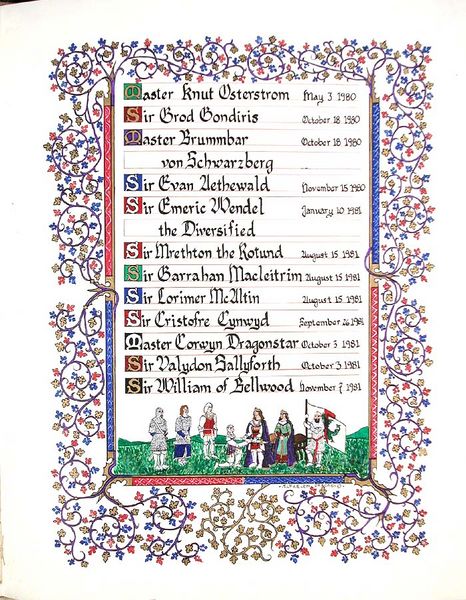 Master Knut Osterstrom May 3 1980
Sir Grod Gondiris October 18 1980
Master Brummbar October 18 1980
von Schwarzberg
Sir Evan Aethewald November 15 1980
Sir Emeric Wendel January 10 1981
the Diversified
Sir Mrethton the Rotund August 15 1981
Sir Garrahan Macleitrim August 15 1981
Sir Lorimer McAltin August 15 1981
Sir Cristofre Cynwyd September 26 1981
Master Corwyn Dragonstar October 3 1981
Sir Valydon Sallyforth October 3 1981
Sir William of Bellwood November 7 1981